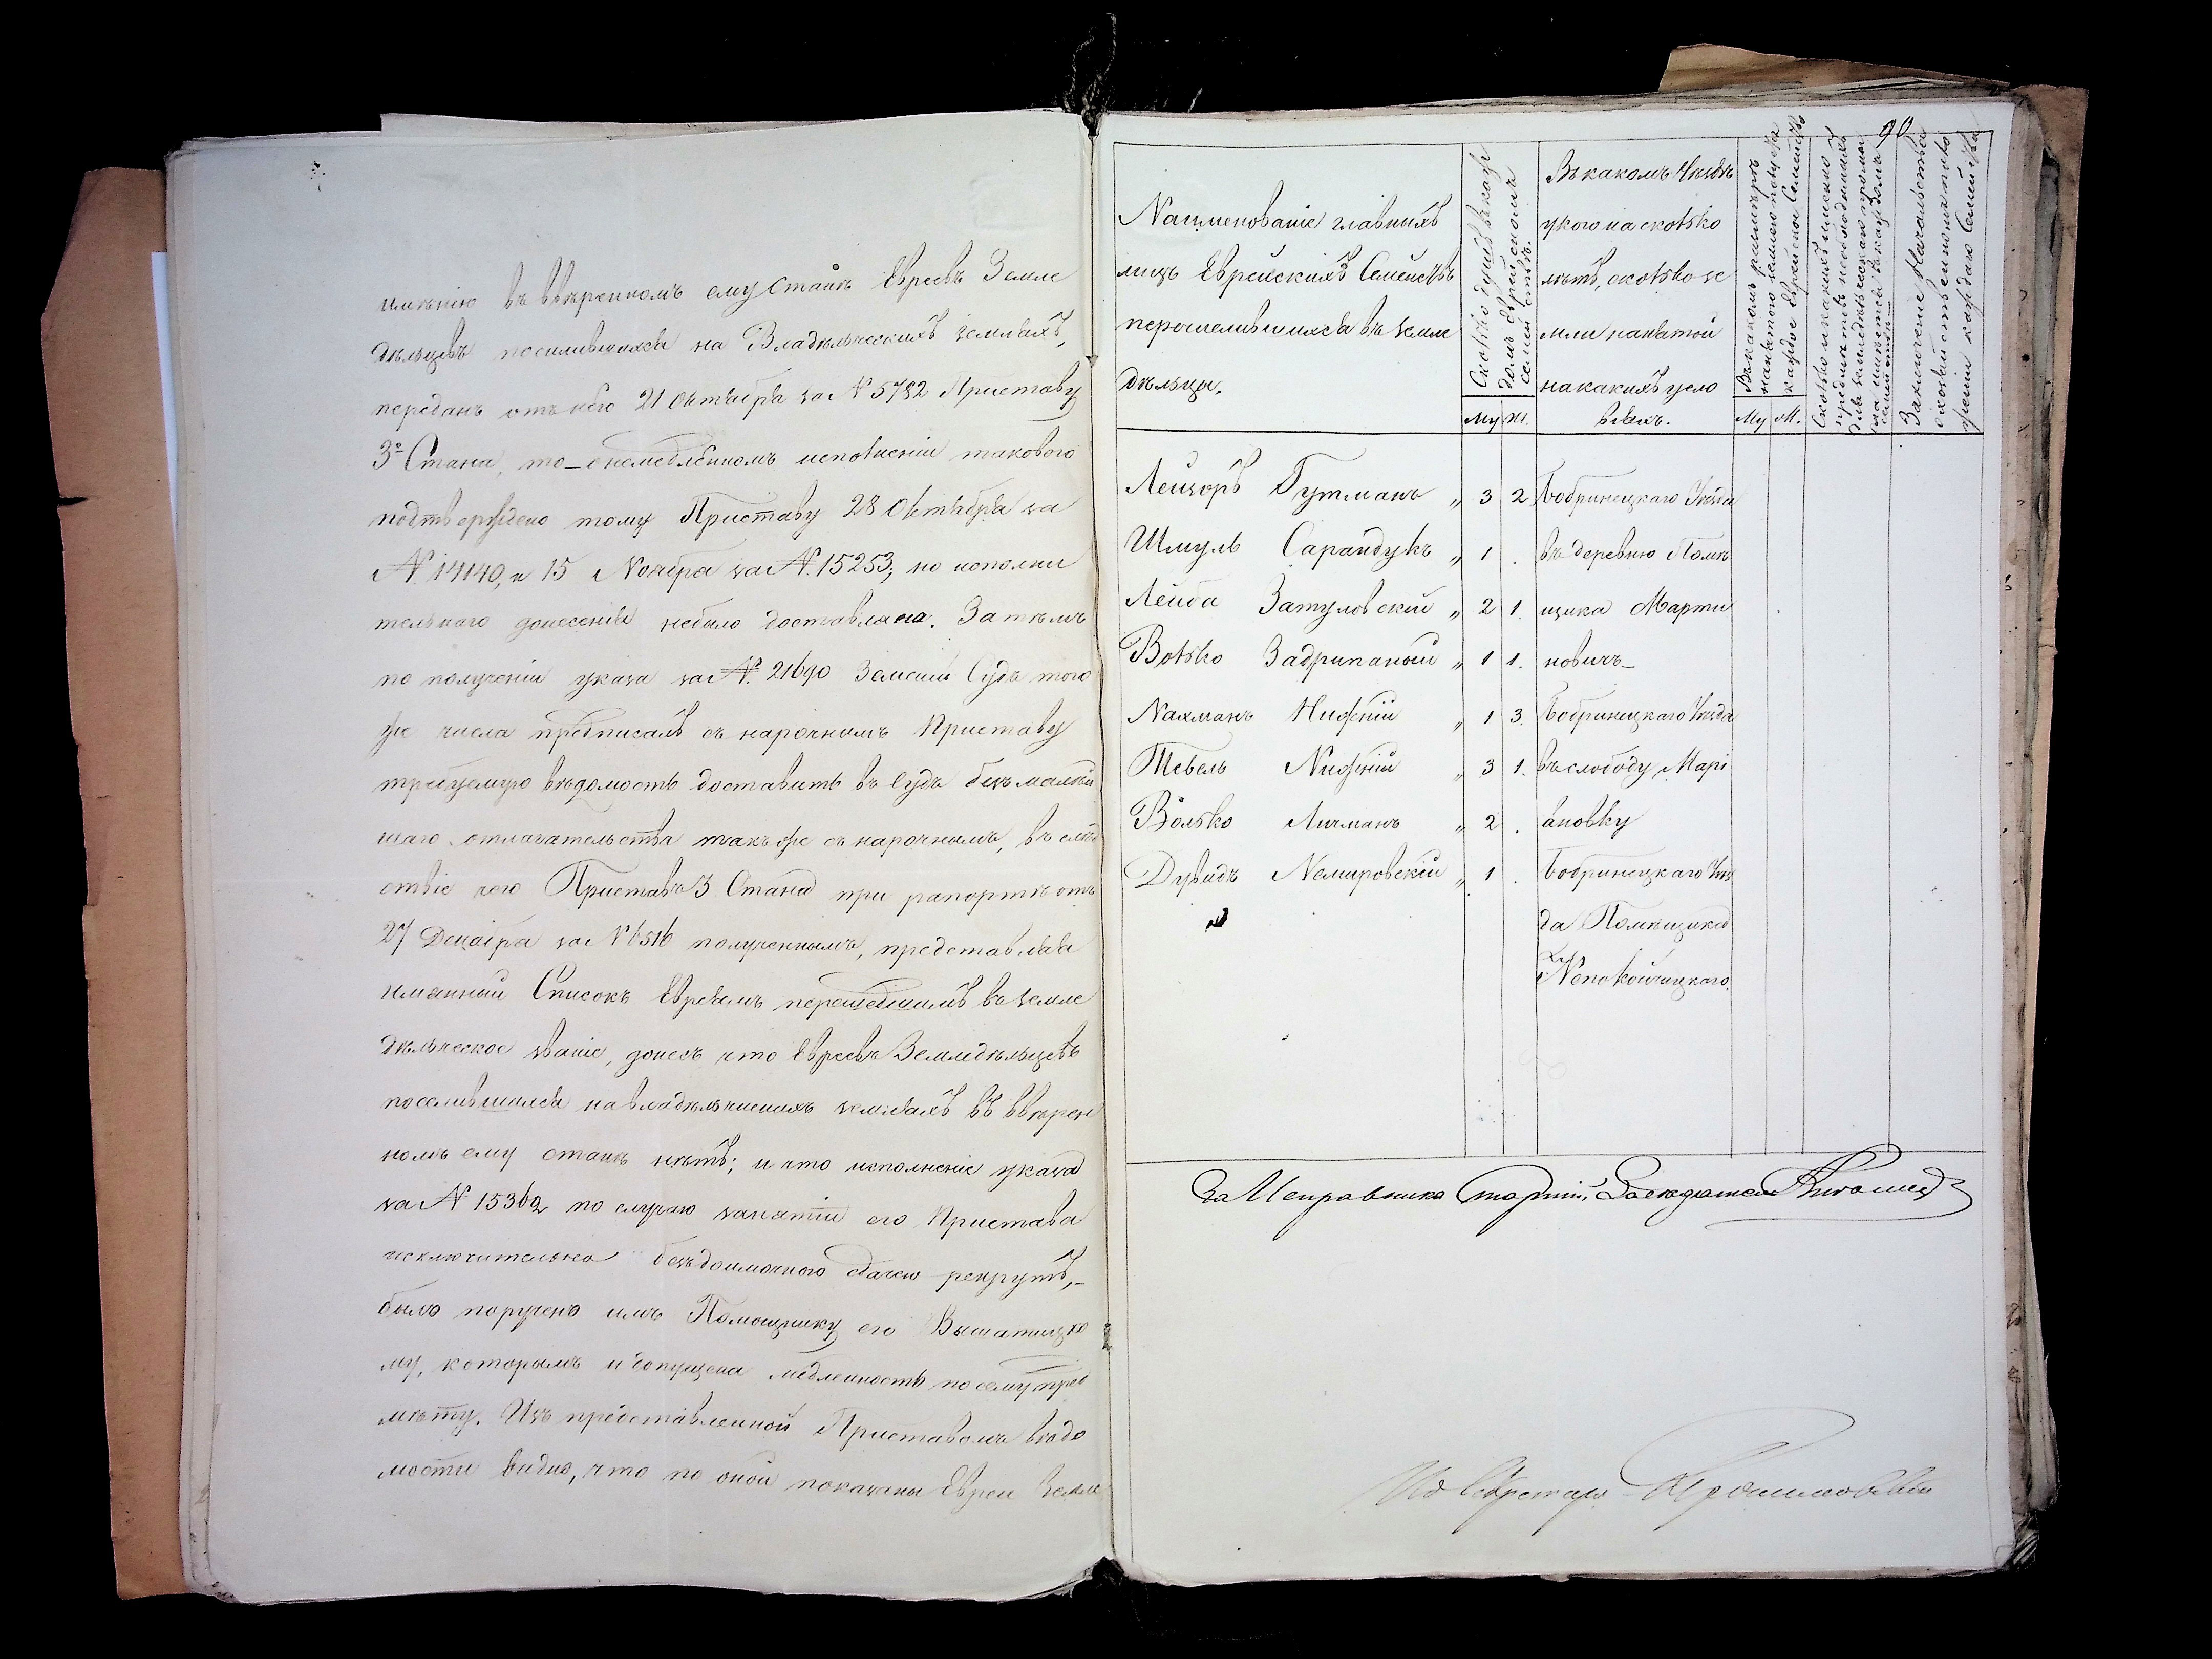 имѣнію въ ввѣренномъ ему Станѣ Евреевъ Земле
дѣльцевъ поселившихся на Владѣльческихъ земляхъ,
переданъ отъ него 21 Октября за № 5782 Приставу
3º Стана, то_ о немедленномъ исполненіи таковаго
подтверждено тому Приставу 28 Октября за
№ 14140, и 15 Ноября за № 15253; но исполни
тельнаго донесенія небыло доставлена. За тѣмъ
по полученіи указа за № 21690 Земскій Судъ того
же числа предписалъ съ нарочнымъ Приставу
требуемую вѣдомость доставить въ Судъ безъ малѣй
шаго отлагательства такъ же съ нарочнымъ, въ слѣд
ствіе чего Приставъ 3 Стана при рапортѣ отъ
27 Декабря за № 6516 полученнымъ, представляя
имянний Списокъ Евреямъ перешедшимъ въ земле
дѣльческое званіе, донесъ что Евреевъ Земледѣльцевъ
поселившихся на владѣльческихъ земляхъ въ ввѣрен
номъ ему станѣ нѣтъ; и что исполненіе указа
за № 15362 по случаю занятія его Пристава
исключительно бездоимочного сдачею рекрутъ,_
было поручено имъ Помощнику его Вышатицко
му, которымъ и допущена медленность по сему пред
мѣту. Изъ представленной Приставомъ вѣдо
мости видно, что по оной показаны Евреи Земле
90
Наименованіе главныхъ
лицъ Еврейскихъ Семействъ
перечислившихся въ земле
дѣльцы.
Сколько душъ въ каж
домъ еврейскомъ
семействѣ.
Въ какомъ Уѣздѣ
у кого на сколько
лѣтъ, сколько зе
мли нанятой
на какихъ усло
віяхъ.
Въ какомъ размѣрѣ
нанятого землею надѣла
каждое Еврейское Семейство
Сколько и какихъ именно
предметовъ необходимыхъ
для земледѣльческаго промы
сла имѣется въ каждомъ
семействѣ
Заключеніе Начальства
о хозяйственномъ поло
женіи каждаго Семейства
Му Ж. Му М.
Лейзоръ Гутманъ „ 3 2 Бобринецкаго Уѣзда
Шмуль Сарандукъ „ 1 . въ деревню Помѣ
Лейба Затуловскій „ 2 1. щика Марти
Волько Задрипаный „ 1 1. новичъ_
Нахманъ Нижній „ 1 3. Бобринецкаго Уѣзда
Тевель Нижній „ 3 1. въ слободу Марі
Волько Личманъ „ 2 . ановку
Дувидъ Немировскій „ 1 . Бобринецкаго Уѣз
да Помѣщика
Непокойчицкаго.
За Исправника Старшій Засѣдатель
Ид Секретаря